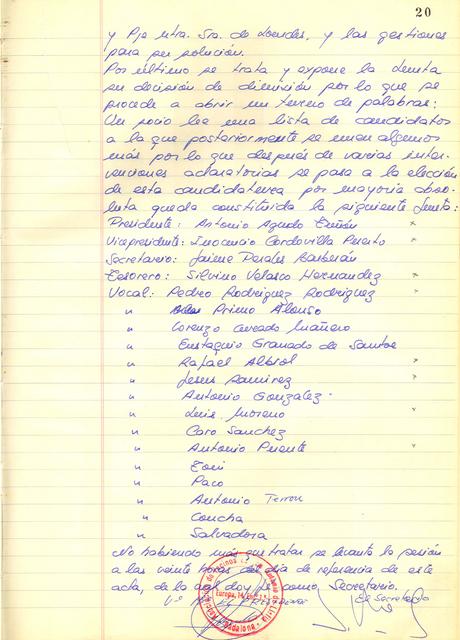 20
y Pje ntra. Sra. de Lourdes, y las gestiones
para su solución.
Por último se trata y expone la Junta
su decisión de dimisión por lo que se
procede a abrir un turno de palabras:
Un socio lee una lista de candidatos
a la que posteriormente se unen algunos
más por lo que después de varias inter-
venciones aclaratorias se pasa a la elección
de esta candidatura por mayoría abso-
luta queda constituida la siguiente Junta:
Presidente: Antonio Agudo
Vicepresidente: Inocencio Cordovilla Puerto ×
Secretario: Jaime Perales Barberán
Tesorero: Silvino Velasco Hernandez ×
Vocal: Pedro Rodriguez Rodriguez ×
" Primo Alonso
" Lorenzo
" Eustaquio Granado de Santos
" Rafael Albiol ×
" Jesus Ramirez ×
" Antonio Gonzalez
" Luis Moreno ×
" Caro Sanchez
" Antonio Puente ×
" Toni
" Paco
" Antonio Terron
" Concha
" Salvadora
No habiendo más que tratar se levanta la sesión
a las veinte horas del día de referencia de este
acta, de lo cual doy fe como Secretario.
Vº PRESIDENTE El Secretario